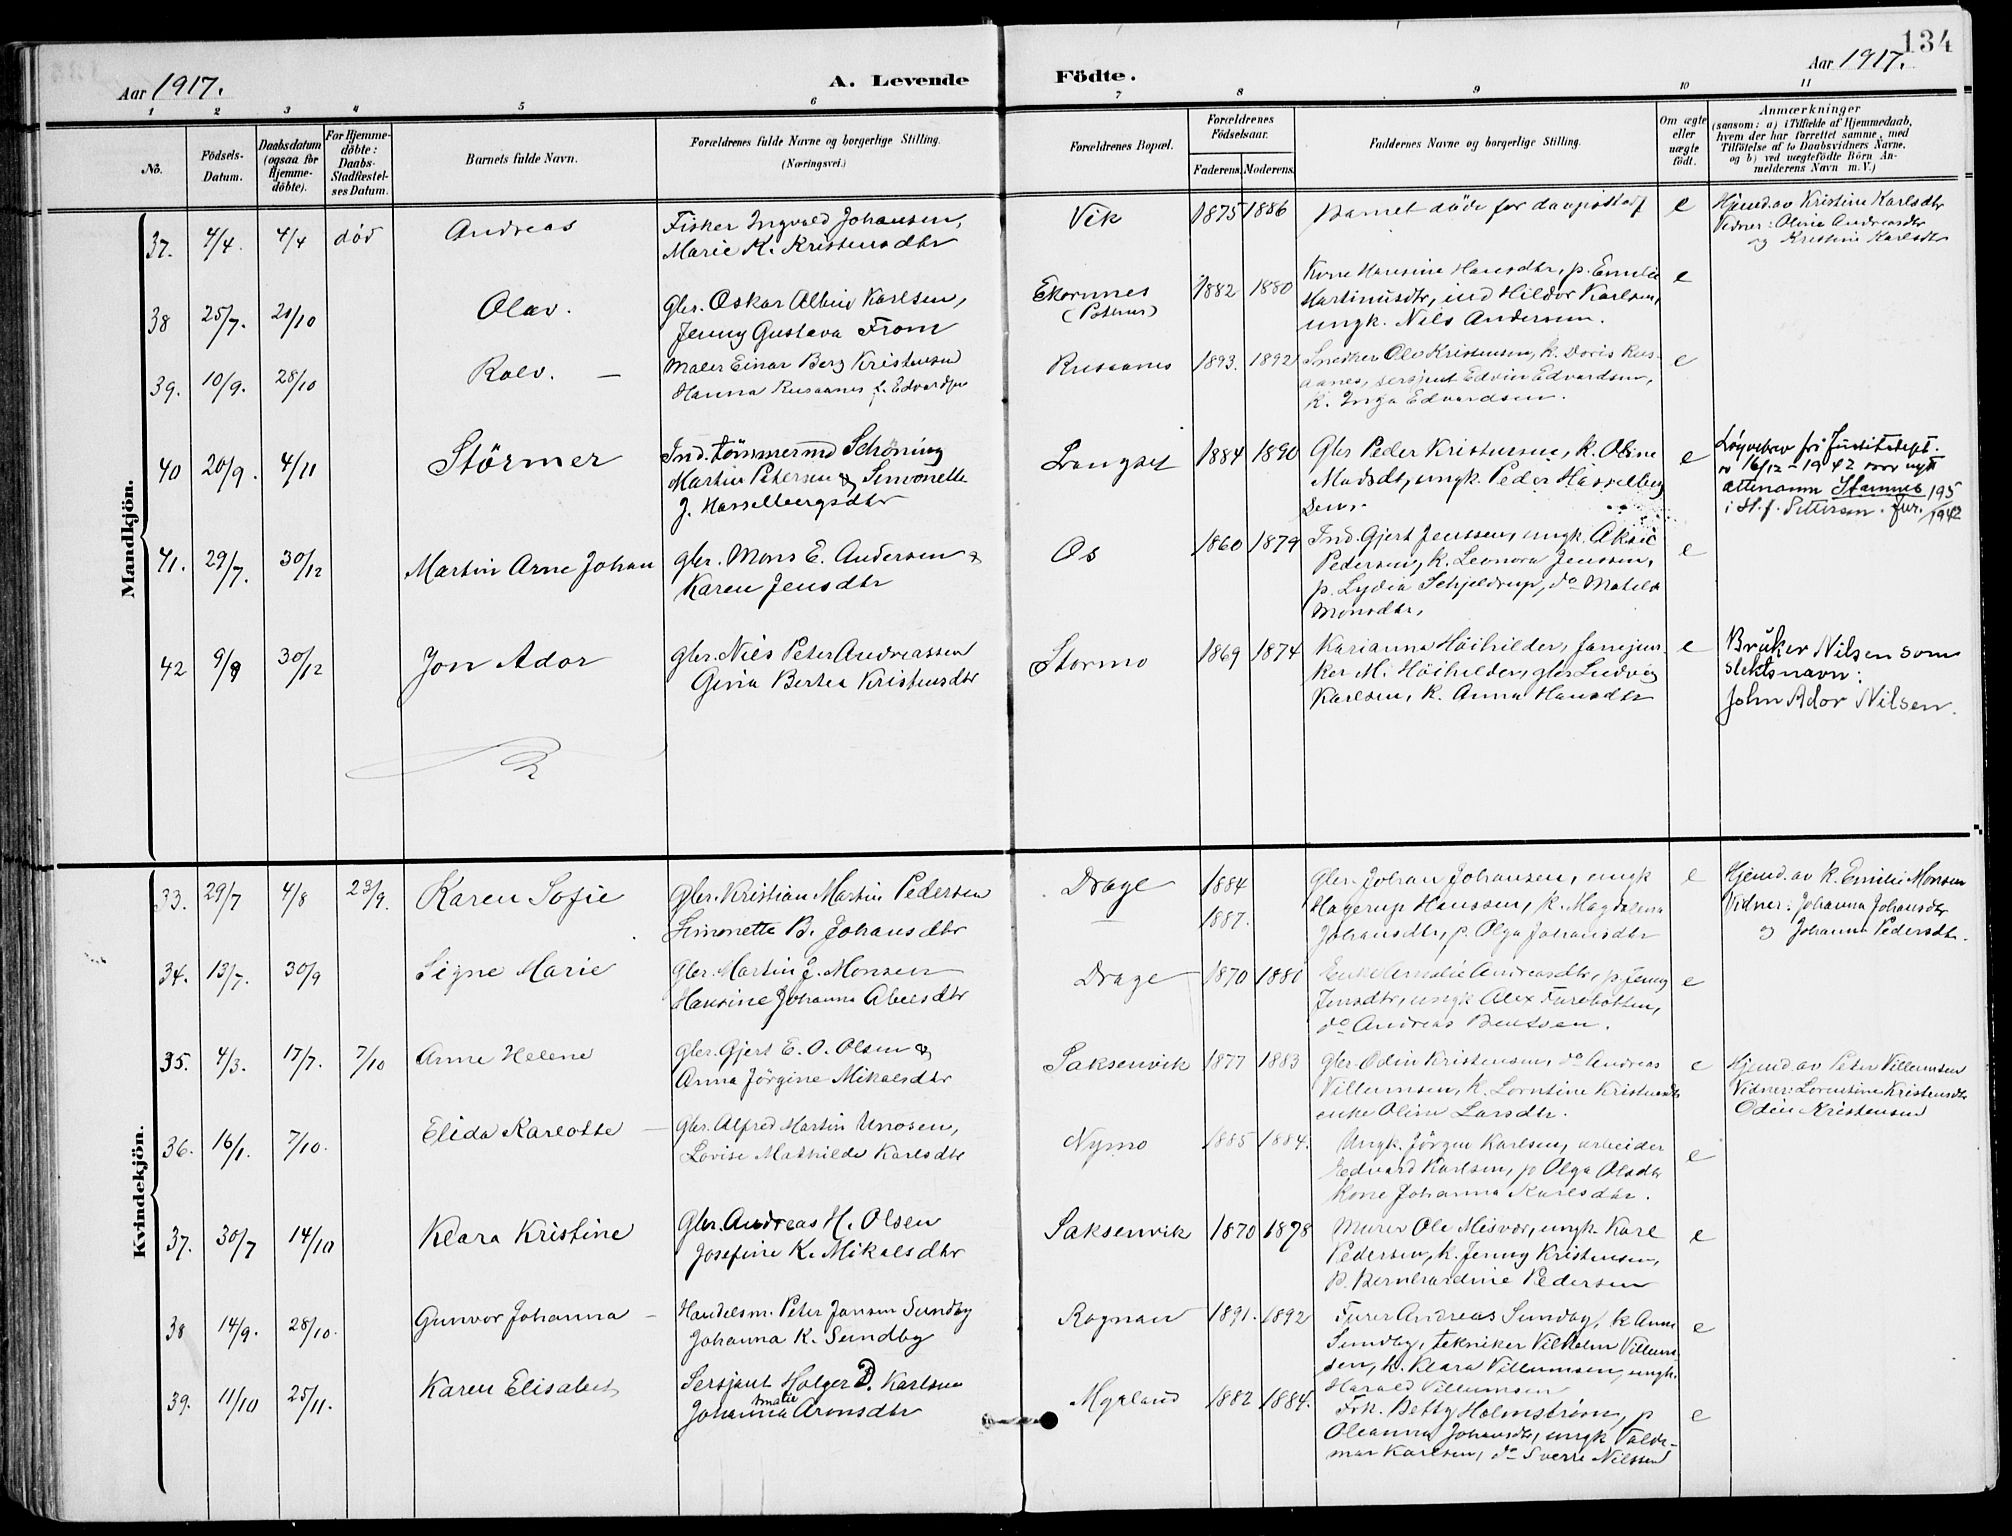 134
Aar 1917.
A. Levende Födte.
Aar 1917.
1 2 3 4 5 6 7 8 9 10 11
No.
Födsels-Datum.
Daabsdatum (ogsaa for Hjemme-döbte).
For Hjemme-döbte: Daabs-Stadfæstel-ses Datum.
Barnets fulde Navn.
Forældrenes fulde Navne og borgerlige Stilling. (Næringsvei.)
Forældrenes Bopæl.
Forældrenes Födselsaar.
Faderens. Moderens.
Faddernes Navne og borgerlige Stilling.
Om ægte eller uægte födt.
Anmærkninger
(saasom: a) i Tilfælde af Hjemmedaab,
hvem der har forrettet samme, med
Tilföielse af to Daabsvidners Navne.
og b) ved uægtefödte Börn An-
melderens Navn m. V.)
Mandkjön.
37. 4/4. 4/4 död Andreas
Fisker Ingvald Johansen,
Marie K. Kristensdtr
Vik 1875 1886 Barnet döde før e
Hjemd. av Kristine Karlsdtr
Vidner: Oline Andreasdtr
og Kristine Karlsdtr
38 25/7. 21/10 Olav.
Gbr. Oskar Albin Karlsen,
Jenny Gustava From
Ekornnes 1882 1880
Kone Hansine Hansdtr, p. Emilie
Martinusdtr, ind Hildor Karlsen,
ungk. Nils Andersen.
e
39. 10/9. 28/10 Rolv. —
Maler Einar Berg Kristensen
Hanna Rusaanes f. Edvardsen
Rusaanes 1893. 1892
Snedker Ole Kristensen, k. Doris Rus-
aanes, sersjant Edvin Edvardsen,
k. Inga Edvardsen.
e
40 20/9. 4/11 Störmer
Ind. tömmermd Schöning
Martin Petersen & Simonette
J. Hasselbergsdtr
Langset 1884 1890
Gbr Peder Kristensen, k. Oline
Madsdtr, ungk. Peder Hasselberg
sen.
e
Løyvebrev frå Justitsdept.
16/12 - 1942 nytt
ættenamn Stamnes 195/1942
41. 29/7. 30/12 Martin Arne Johan
Gbr. Mons E. Andersen &
Karen Jensdtr
Os 1860 1879
Ind. Gjert Jenssen, ungk. Aksel
Pedersen, k. Leonora Jenssen,
p. Lydia Schjeldrup, do Matilde
Monsdtr,
e
42 9/9 30/12 Jon Ador
Gbr. Nils Peter Andreassen
Gina Bertea Kristensdtr
Stormo 1869 1874
Karianna Höihilder,
ker M. Höihilder, gbr Ludvig
Karlsen, k. Anna Hansdtr
e
Bruker Nilsen som
slektsnavn:
John Ador Nilsen.
Kvindekjön.
33. 29/7 4/8 23/9. Karen Sofie
Gbr. Kristian Martin Pedersen
Simonette B. Johansdtr
Drage 1884
1887.
Gbr. Johan Johansen, ungk
Hagerup Hanssen, k. Magdalena
Johansdtr, p. Olga Johansdtr
e
Hjemd. av k. Emilie Monsen
Vidner: Johanna Johansdtr
og Johanna Pedersdtr.
34. 13/7. 30/9 Signe Marie
Gbr. Martin J. Monsen
Hansine Johanna Abelsdtr
Drage 1870 1881
Enke Amalie Andreasdtr, p. Jenny
Jensdtr, ungk Alex Furebotten,
do Andreas Bentsen.
e
35. 4/3. 17/7. 7/10 Anne Helene
Gbr. Gjert E. O. Olsen &
Anna Jörgine Mikalsdtr
Saksenvik 1877 1883
Gbr. Odin Kristensen, do Andreas
Villumsen, k. Lorntine Kristensdtr
enke Oline Larsdtr.
e
Hjemd av Peter Villumsen
Vidner: Lorentine Kristensdtr
Odin Kristensen
36. 16/1. 7/10. Elida Karlotte —
Gbr. Alfred Martin Unosen,
Lovise Mathilde Karlsdtr
Nymo 1885 1884.
Ungk. Jörgen Karlsen, arbeider
Edvard Karlsen, p Olga Olsdtr
Kone Johanna Karlsdtr.
e
37. 30/7 14/10 Klara Kristine
Gbr. Andreas H. Olsen
Josefine K. Mikalsdtr
Saksenvik 1870 1878
Murer Ole Misvær, ungk. Karl
Pedersen, k. Jenny Kristensen,
p. Bernhardine Pedersen
e
38 14/9. 28/10. Gunvor Johanna —
Handelsm. Peter Jansen Sundby
Johanna K. Sundby
Rognan 1891. 1892
Furer Andreas Sundby, k Anna
Sundby, tekniker Vilhelm Villum-
sen, k. Klara Villumsen, ungk.
Harald Villumsen
e
39. 11/10 25/11. Karen Elisabet
Sersjant Holger D. Karlsen
Johanna Amalie Aronsdtr
Myrland 1882 1884.
Frk. Betty Holmström, p
Oleanna Johansdtr, ungk Valde-
mar Karlsen, do Sverre Nilssen
e